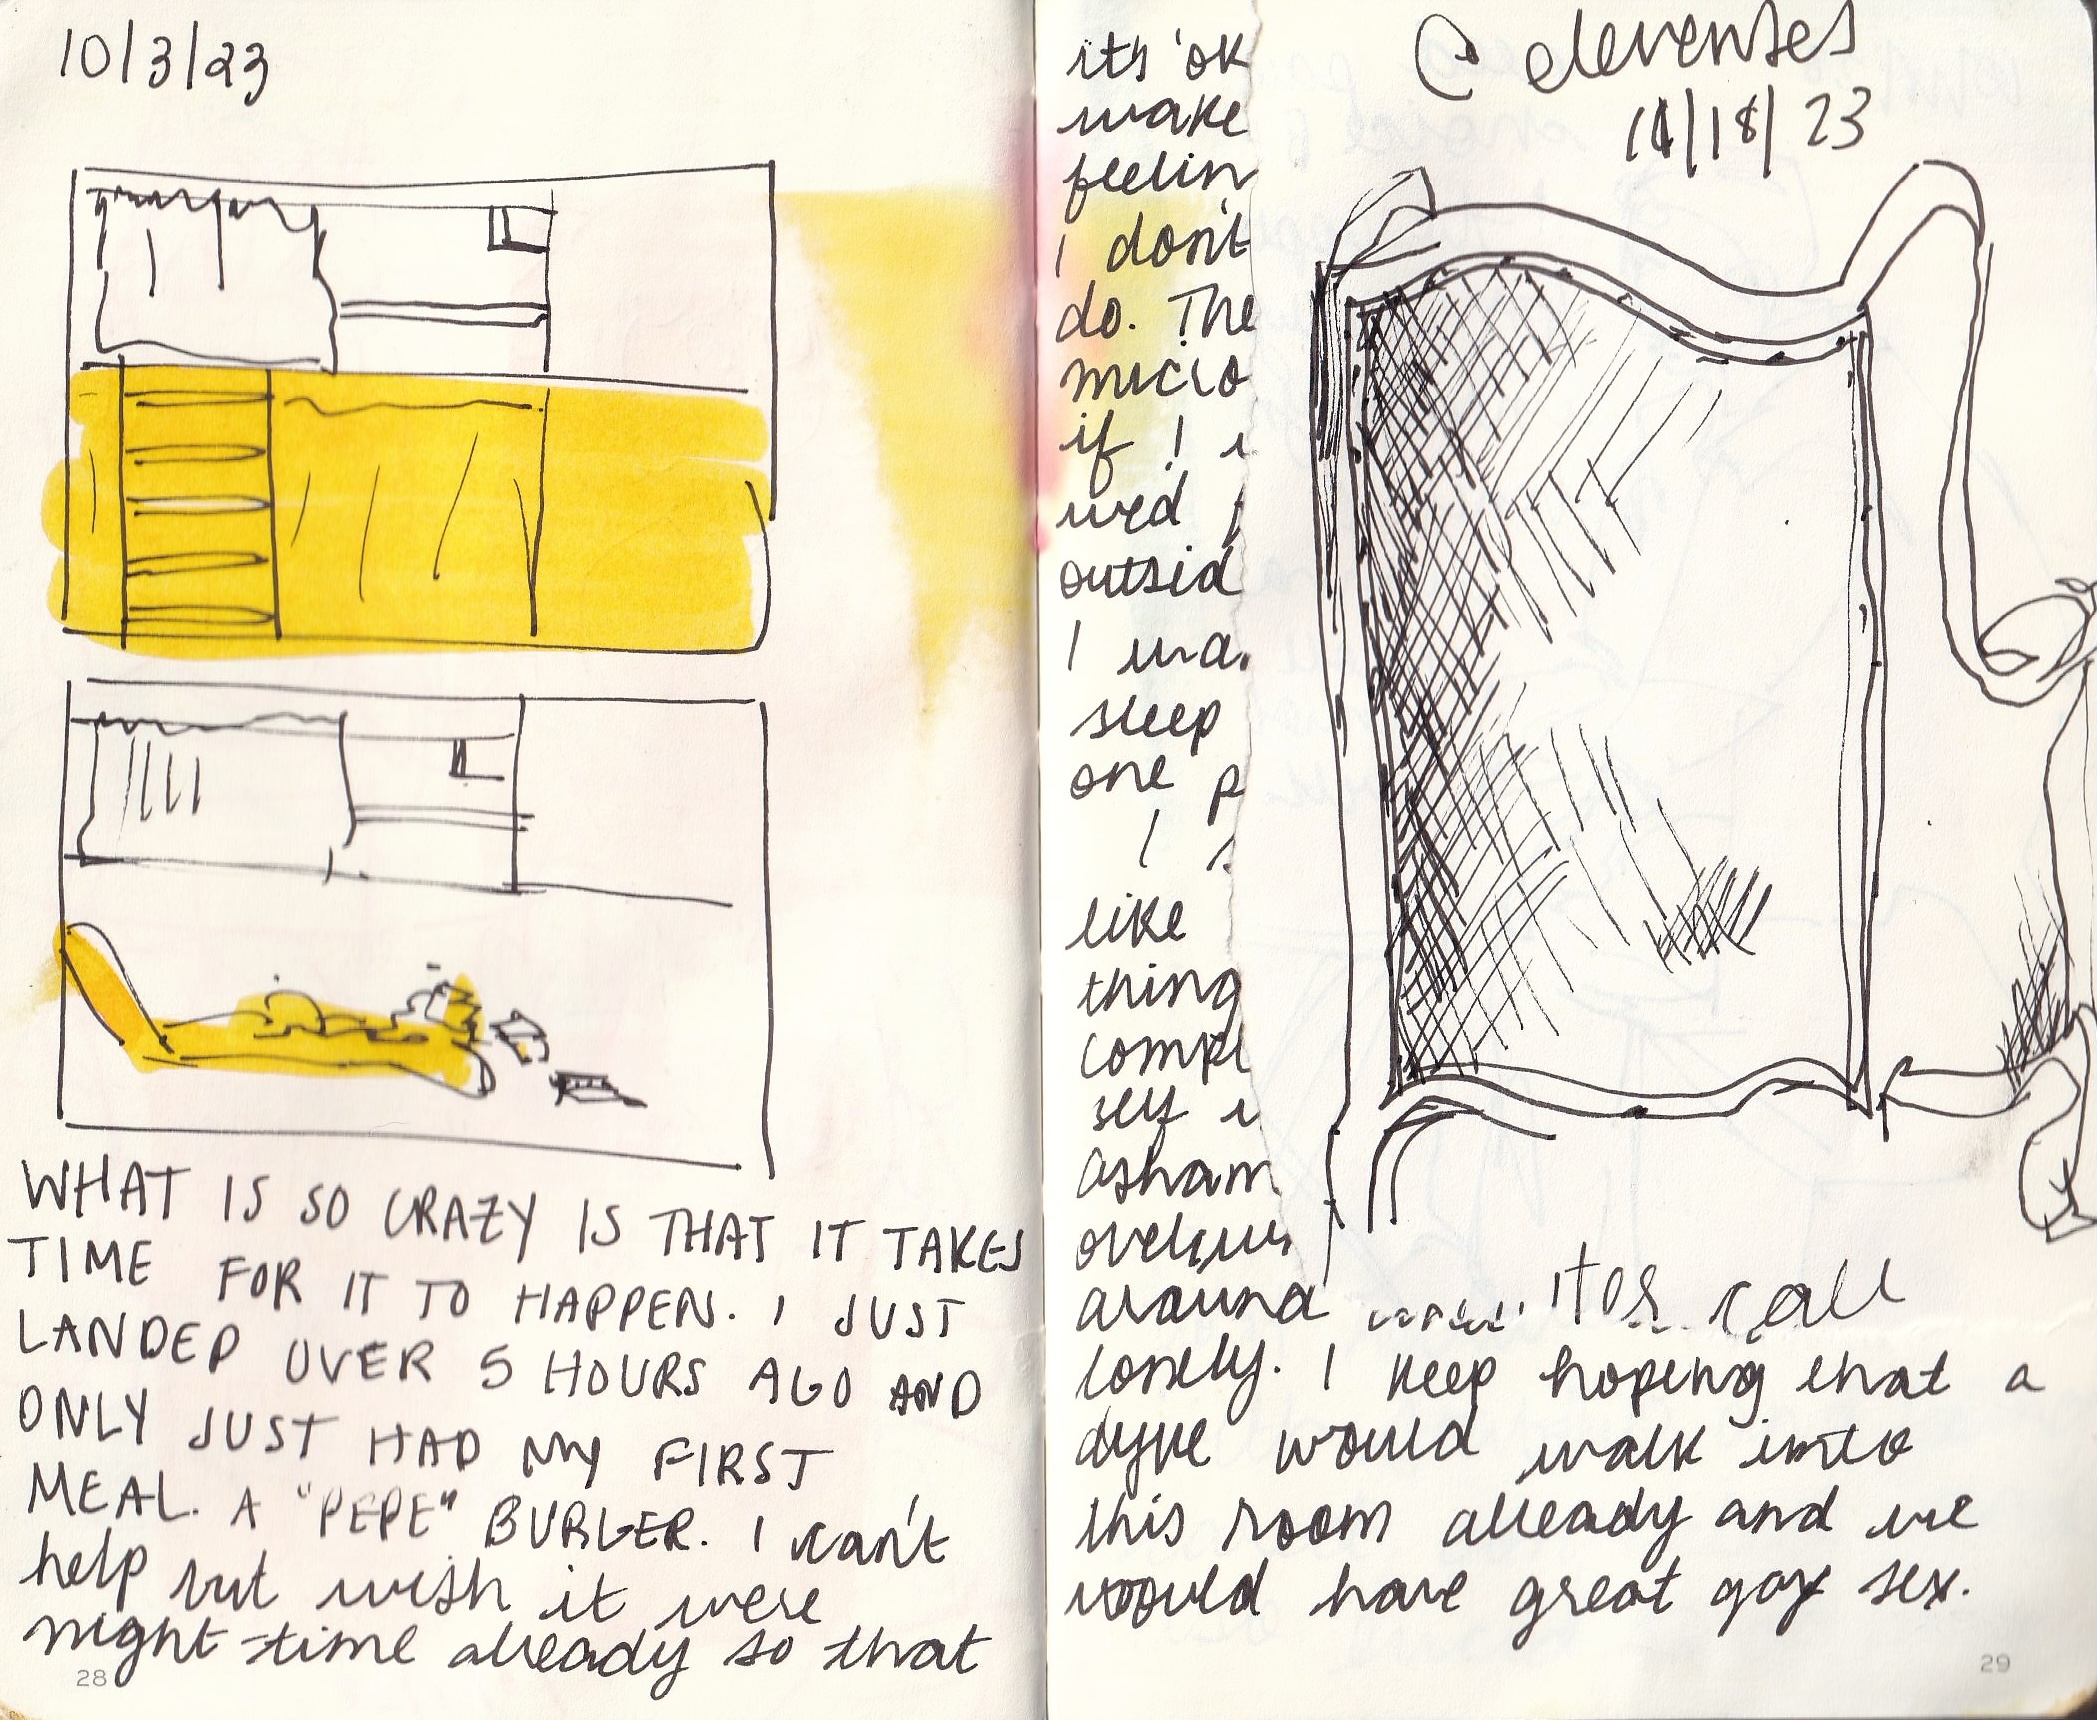 10/3/23
WHAT IS SO CRAZY IS THAT IT TAKES
TIME FOR IT TO HAPPEN. I JUST
LANDED OVER 5 HOURS AGO AND
ONLY JUST HAD MY FIRST
MEAL. A "PEPE" BURGER. I can't
help but wish it were
night-time already so that
28
its ok
wake
feelin
I don't
do. The
micro
if I
wed
outsid
I wa
sleep
one p
I
like
thing
compl
self
asham
around
lonely. I keep hoping that a
dyke would walk into
this room already and we
would have great gay sex.
@ elevenses
11/18/23
call
29